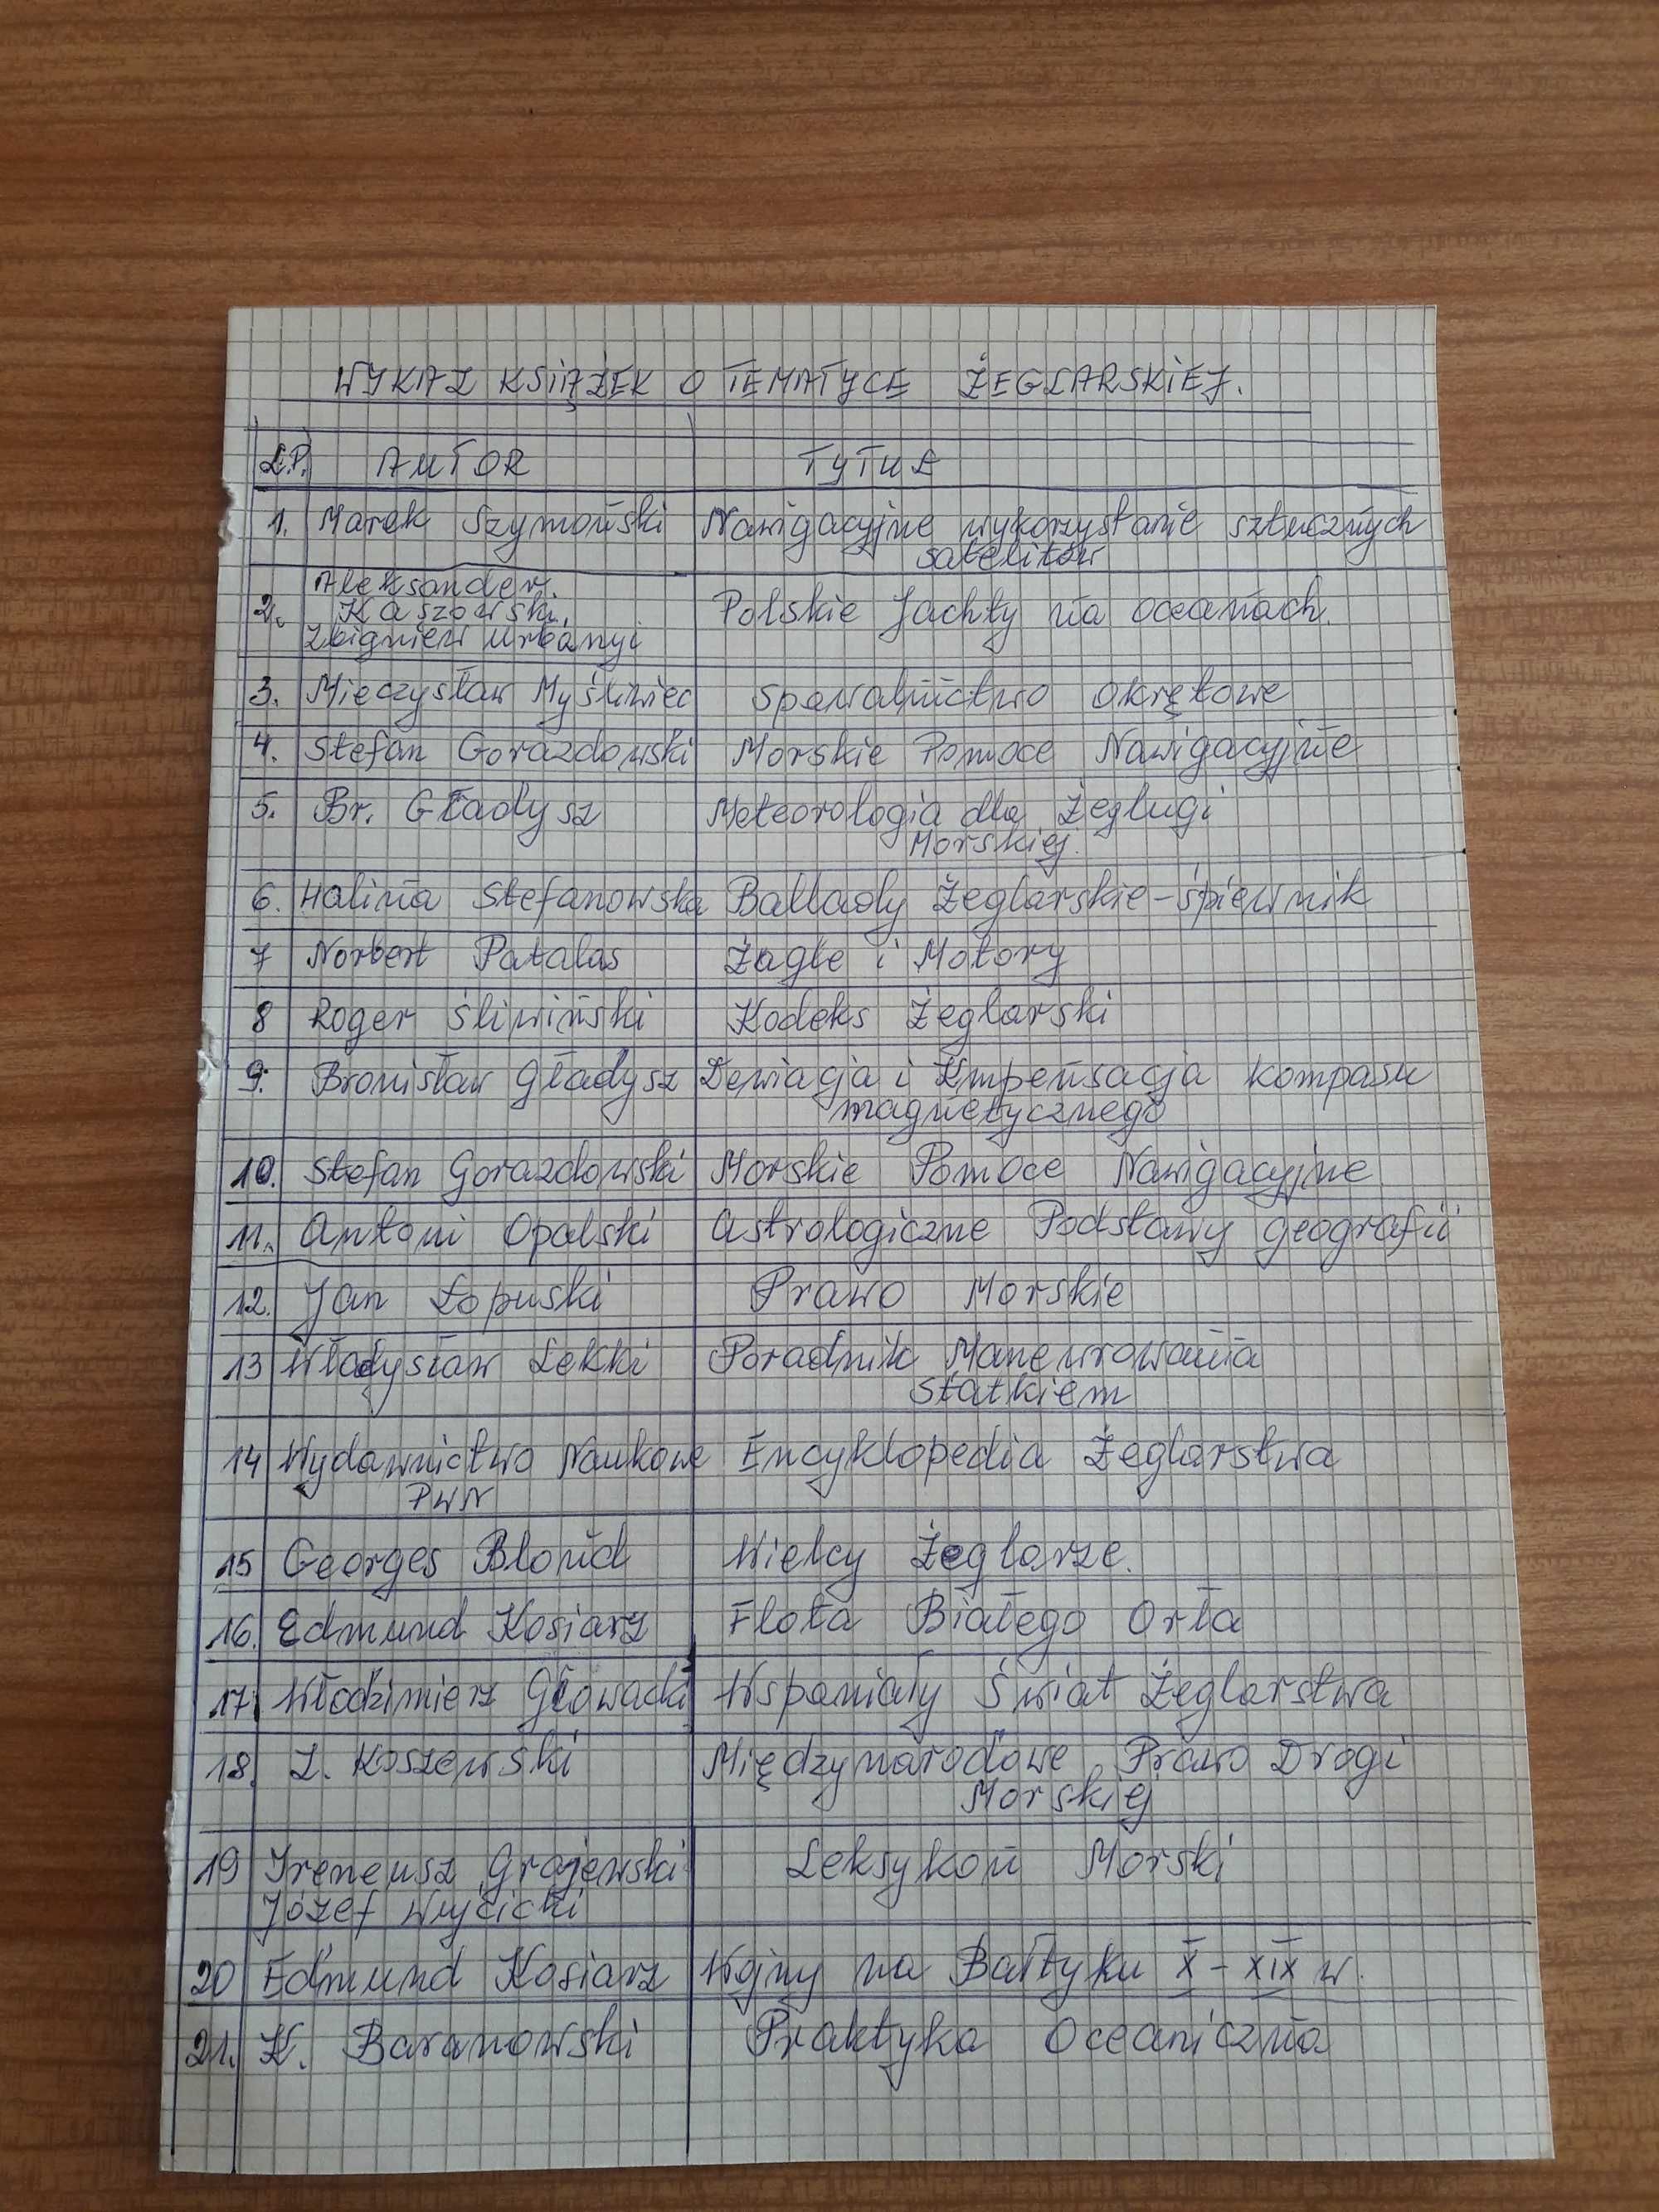 WYKAZ KSIĄŻEK O TEMATYCE ŻEGLARSKIEJ.
L.P. AUTOR TYTUŁ
1. Marek Szymoński Nawigacyjne wykorzystanie sztucznych
satelitów
Aleksander
2. Kaszowski Polskie Jachty na oceanach.
Zbigniew Urbányi
3. Mieczysław Myśliwiec Spawalnictwo okrętowe
4. Stefan Gorazdowski Morskie Pomoce Nawigacyjne
5. Br. Gładysz Meteorologia dla Żeglugi
Morskiej.
6. Halina Stefanowska Ballady Żeglarskie - śpiewnik
7 Norbert Patalas Żagle i Motory
8 Roger Śliwiński Kodeks Żeglarski
9. Bronisław Gładysz Dewiacja i Kmpensacja kompasu
magnetycznego
10. Stefan Gorazdowski Morskie Pomoce Nawigacyjne
11. Antoni Opalski Astrologiczne Podstawy geografii
12. Jan Łopuski Prawo Morskie
13 Władysław Łekki Poradnik Manewrowania
Statkiem
14 Wydawnictwo Naukowe Encyklopedia Żeglarstwa
PWN
15 Georges Blond Wielcy Żeglarze.
16. Edmund Kosiarz Flota Białego Orła
17. Włodzimierz Głowacki Wspaniały Świat Żeglarstwa
18. Z. Koszewski Międzynarodowe Prawo Drogi
Morskiej
19 Ireneusz Grajewski Leksykon Morski
Józef Wójcicki
20 Edmund Kosiarz Wojny na Bałtyku X - XIX w.
21. K. Baranowski Praktyka Oceaniczna